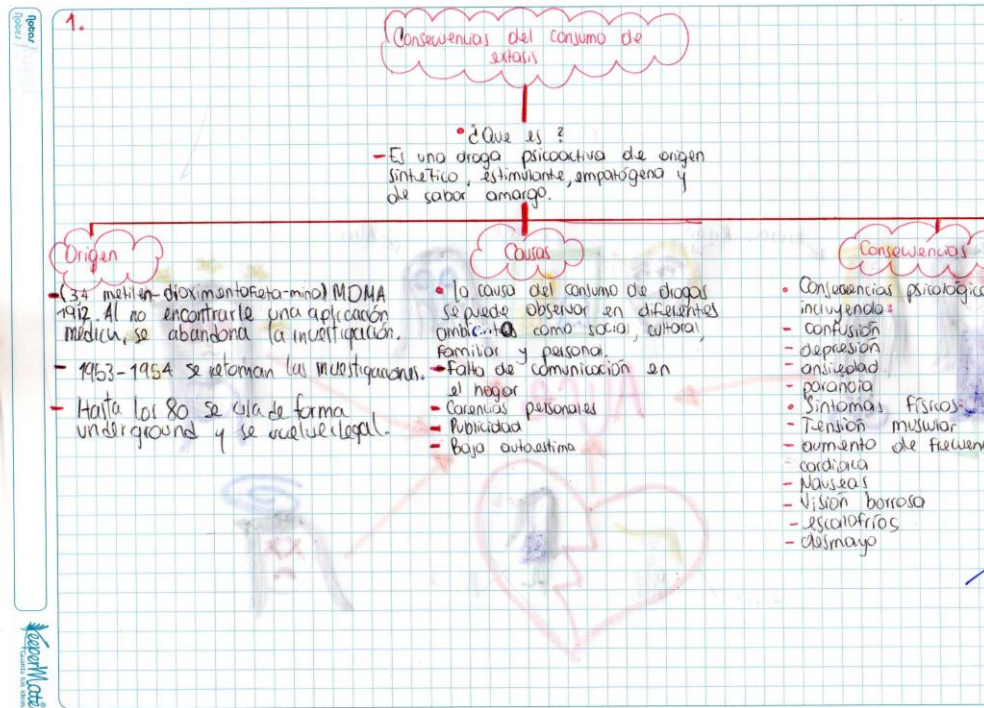 Notas
1.
Consecuencias del consumo de
extasis
• ¿Que es?
- Es una droga psicoactiva de origen
sintetico, estimulante, empatógena y
de sabor amargo.
Origen
- (34 metilen-
MDMA
1912. Al no encontrarle una aplicación
medica, se abandona la investigación.
- 1953-1954 se retoman las investigaciones.
- Hasta los 80 se usa de forma
underground y se vuelve ilegal.
Causas
• la causa del consumo de drogas
se puede observar en diferentes
ambientes como social, cultural,
familiar y personal
- Falta de comunicación en
el hogar
- Carencias personales
- Publicidad
- Bajo autoestima
Consecuencias
• Consecuencias psicológica
incluyendo:
- confusión
- depresión
- ansiedad
- paranoia
• Sintomas físicos:
- Tensión muscular
- aumento de frecuen
cardiaca
- Nauseas
- Visión borrosa
- escalofríos
- desmayo
KeeperMate